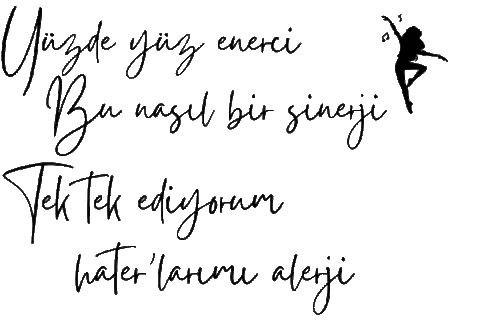 Yüzde yüz enerci
Bu nasıl bir sinerji
Tek tek ediyorum
hater'larımı alerji